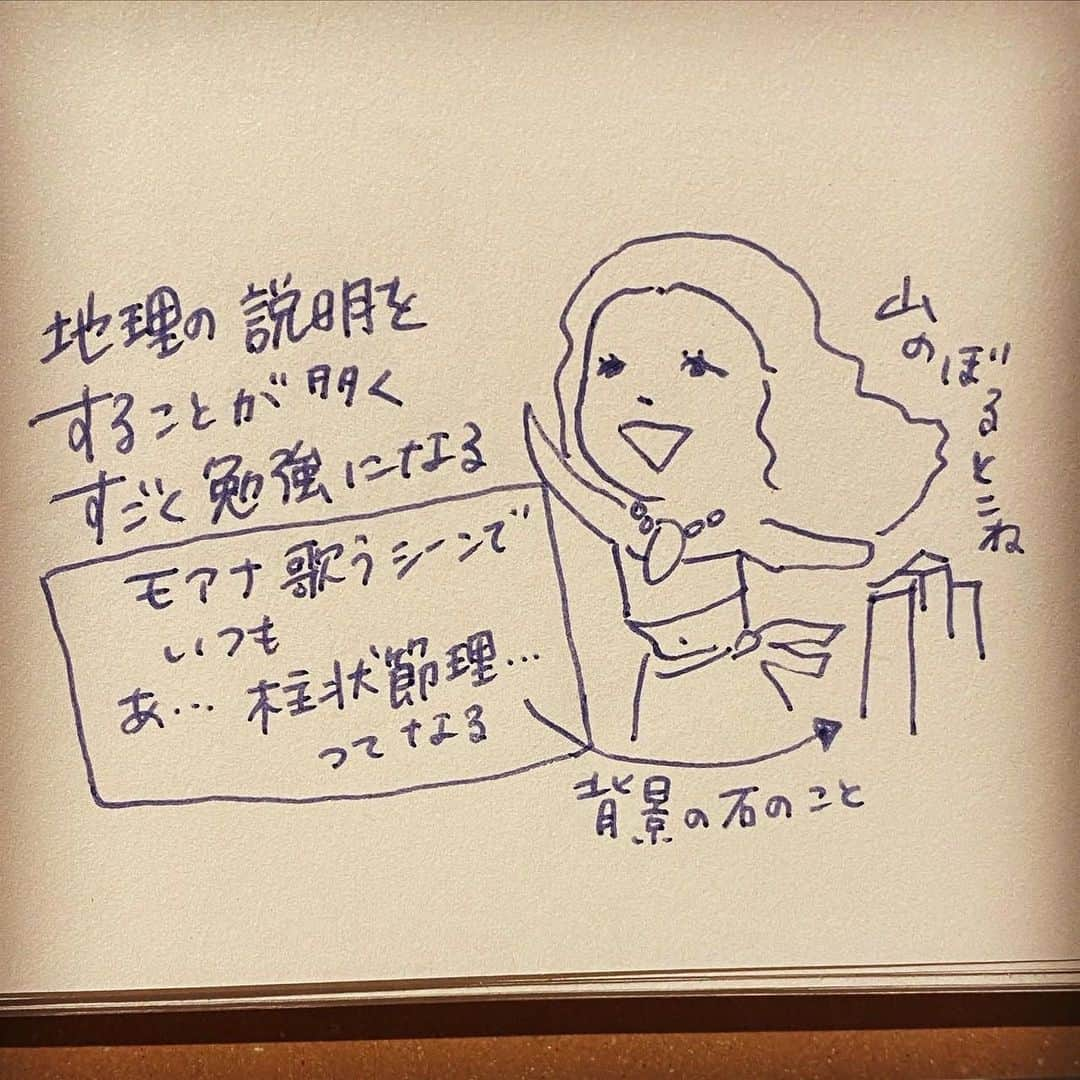 地理の説明を
することが多く
すごく勉強になる
モアナ歌うシーンで
いつも
あ…柱状節理…
ってなる
山のぼるとこね
背景の石のこと